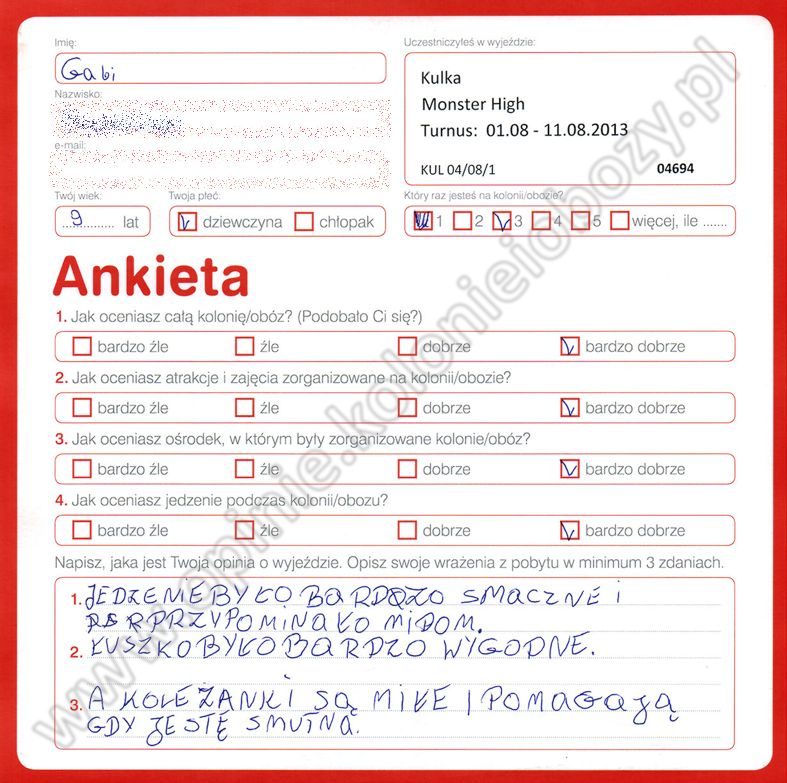 Imię:
Gabi
Nazwisko:
e-mail:
Twój wiek:
9 lat
Twoja płeć:
dziewczyna chłopak
Uczestniczyłeś w wyjeździe:
Kulka
Monster High
Turnus: 01.08 - 11.08.2013
KUL 04/08/1 04694
Który raz jesteś na kolonii/obozie?
1 2 3 4 5 więcej, ile .......
Ankieta
1. Jak oceniasz całą kolonię/obóz? (Podobało Ci się?)
bardzo źle źle dobrze bardzo dobrze
2. Jak oceniasz atrakcje i zajęcia zorganizowane na kolonii/obozie?
bardzo źle źle dobrze bardzo dobrze
3. Jak oceniasz ośrodek, w którym były zorganizowane kolonie/obóz?
bardzo źle źle dobrze bardzo dobrze
4. Jak oceniasz jedzenie podczas kolonii/obozu?
bardzo źle źle dobrze bardzo dobrze
Napisz, jaka jest Twoja opinia o wyjeździe. Opisz swoje wrażenia z pobytu w minimum 3 zdaniach.
1. JEDZENIE BYŁO BARDZO SMACZNE I
PRZYPOMINAŁO MI DOM.
2. ŁUSZKO BYŁO BARDZO WYGODNE.
3. A KOLEŻANKI SĄ MIŁE I POMAGAJĄ
GDY JESTĘ SMUTNA.
www.opinie.kolonieiobozy.pl